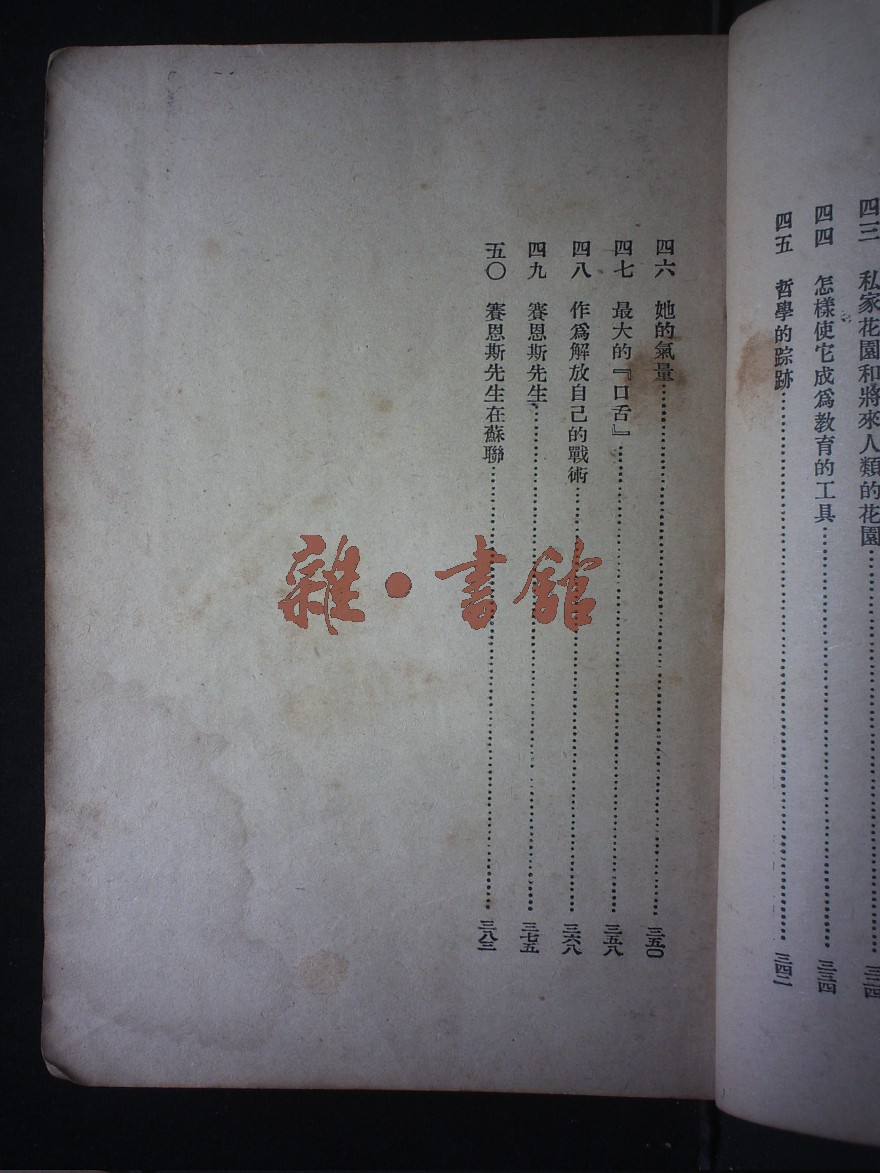 四三　私家花園和將來人類的花園
四四　怎樣使它成爲教育的工具……三三四
四五　哲學的踪跡……三四二
四六　她的氣量……三五〇
四七　最大的『口舌』……三五八
四八　作爲解放自己的戰術……三六八
四九　賽恩斯先生……三七五
五〇　賽恩斯先生在蘇聯……三八三
雜·書館